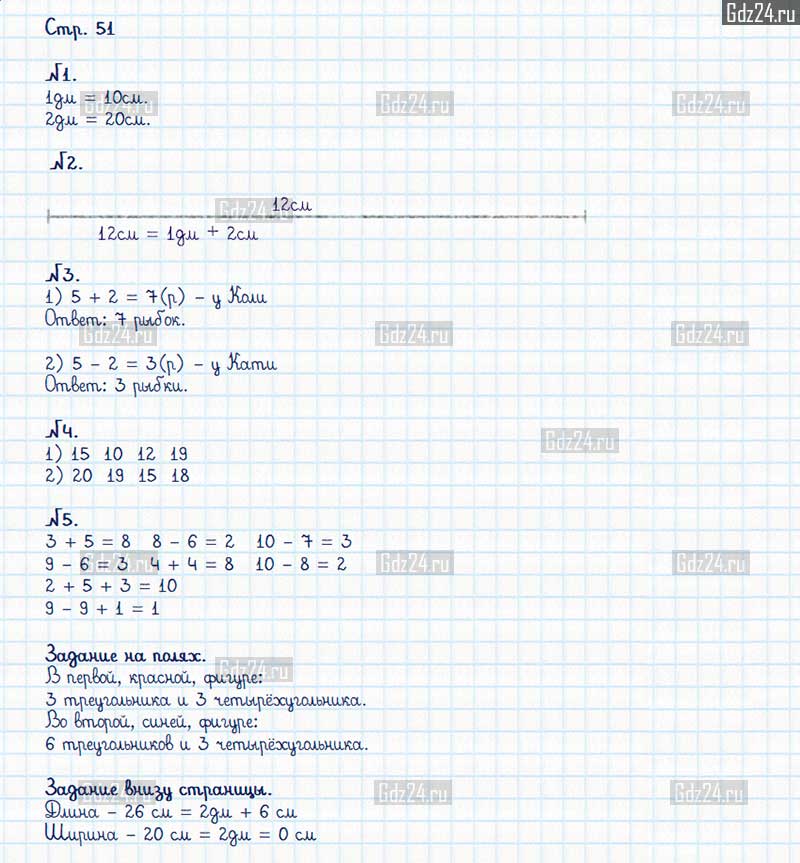 Gdz24.ru
Стр. 51
№1.
1дм = 10см.
Gdz24.ru Gdz24.ru Gdz24.ru
2дм = 20см.
№2.
12см
Gdz24.ru
12см = 1дм + 2см
№3.
1) 5 + 2 = 7(р) - у Коли
Ответ: 7 рыбок.
Gdz24.ru Gdz24.ru Gdz24.ru
2) 5 - 2 = 3(р) - у Кати
Ответ: 3 рыбки.
№4.
Gdz24.ru
1) 15 10 12 19
2) 20 19 15 18
№5.
3 + 5 = 8 8 - 6 = 2 10 - 7 = 3
9 - 6 = 3 4 + 4 = 8 10 - 8 = 2
Gdz24.ru Gdz24.ru Gdz24.ru
2 + 5 + 3 = 10
9 - 9 + 1 = 1
Задание на полях.
Gdz24.ru
В первой, красной, фигуре:
3 треугольника и 3 четырёхугольника.
Во второй, синей, фигуре:
6 треугольников и 3 четырёхугольника.
Задание внизу страницы.
Gdz24.ru Gdz24.ru Gdz24.ru
Длина - 26 см = 2дм + 6 см
Ширина - 20 см = 2дм = 0 см